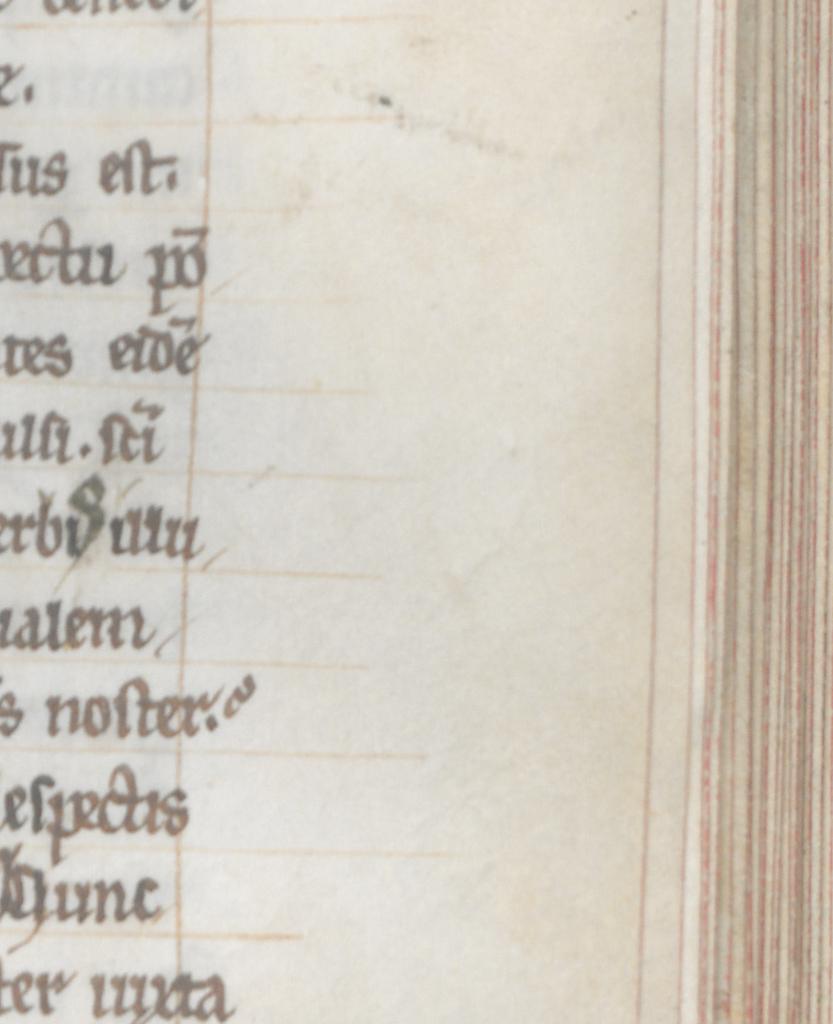 e.
sus est.
ectu pō
tes eidē
ulsi. sci̅
erbis illu
ualem
s noster.
espectis
Nunc
ter iuxta